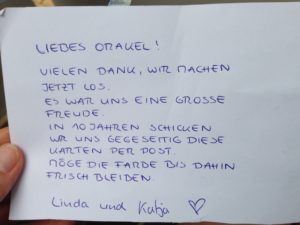 LIEBES ORAKEL!
VIELEN DANK, WIR MACHEN
JETZT LOS.
ES WAR UNS EINE GROSSE
FREUDE.
IN 10 JAHREN SCHICKEN
WR UNS GEGESEITIG DIESE
KARTEN PER POST.
MÖGE DIE FARBE BIS DAHIN
FRISCH BLEIBEN.
Linda und Katja ♡